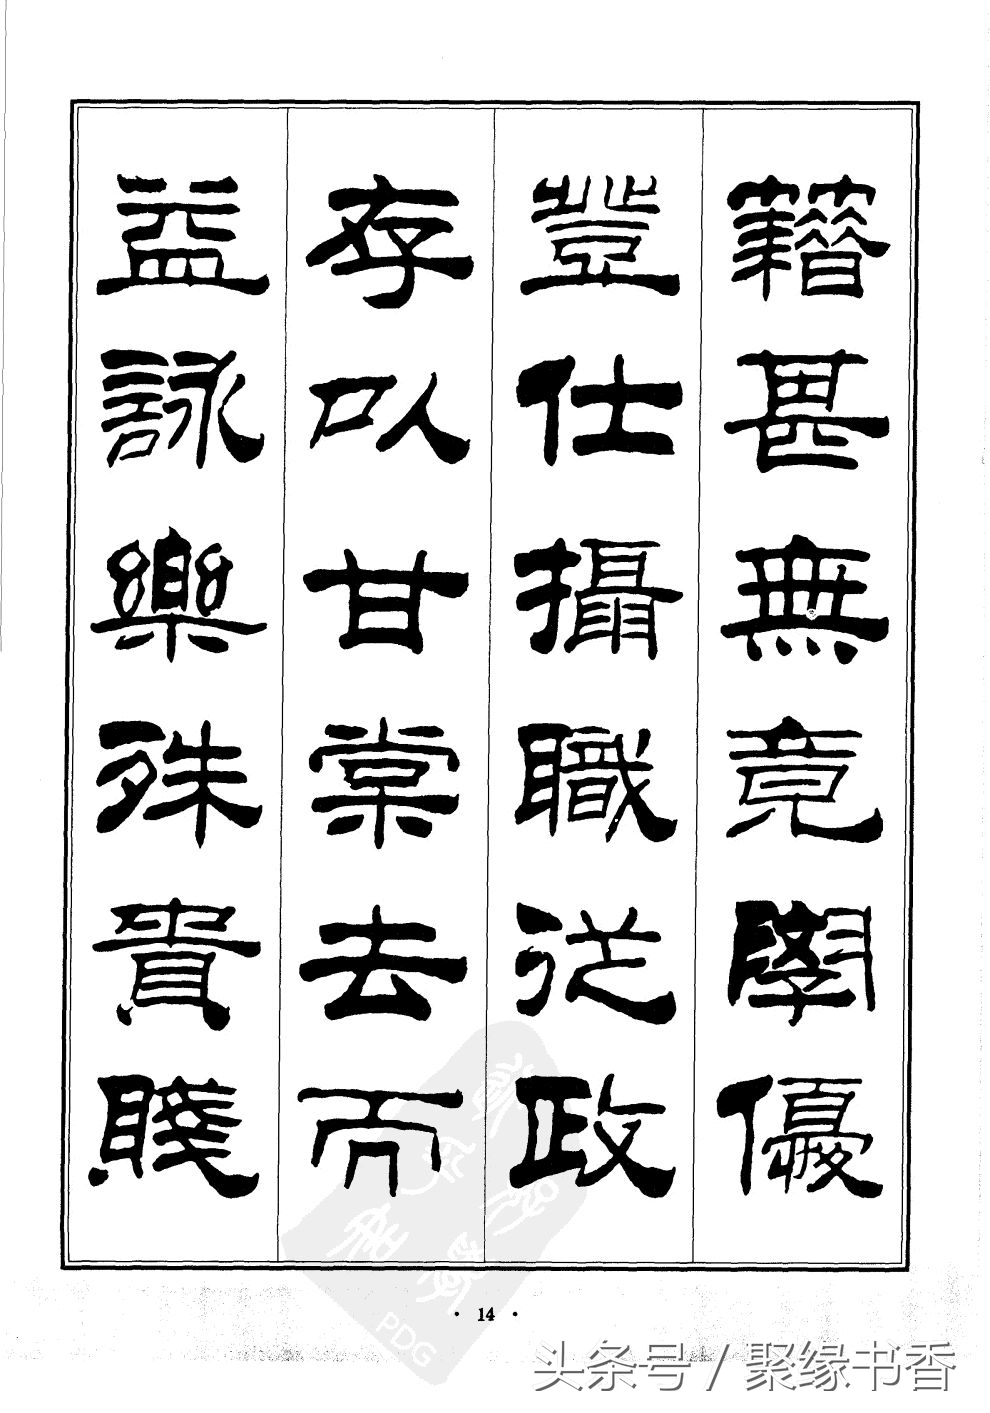 籍甚無竟學優
登仕攝職從政
存以甘棠去而
益詠樂殊貴賤
· 14 ·
PDG
头条号 / 聚缘书香